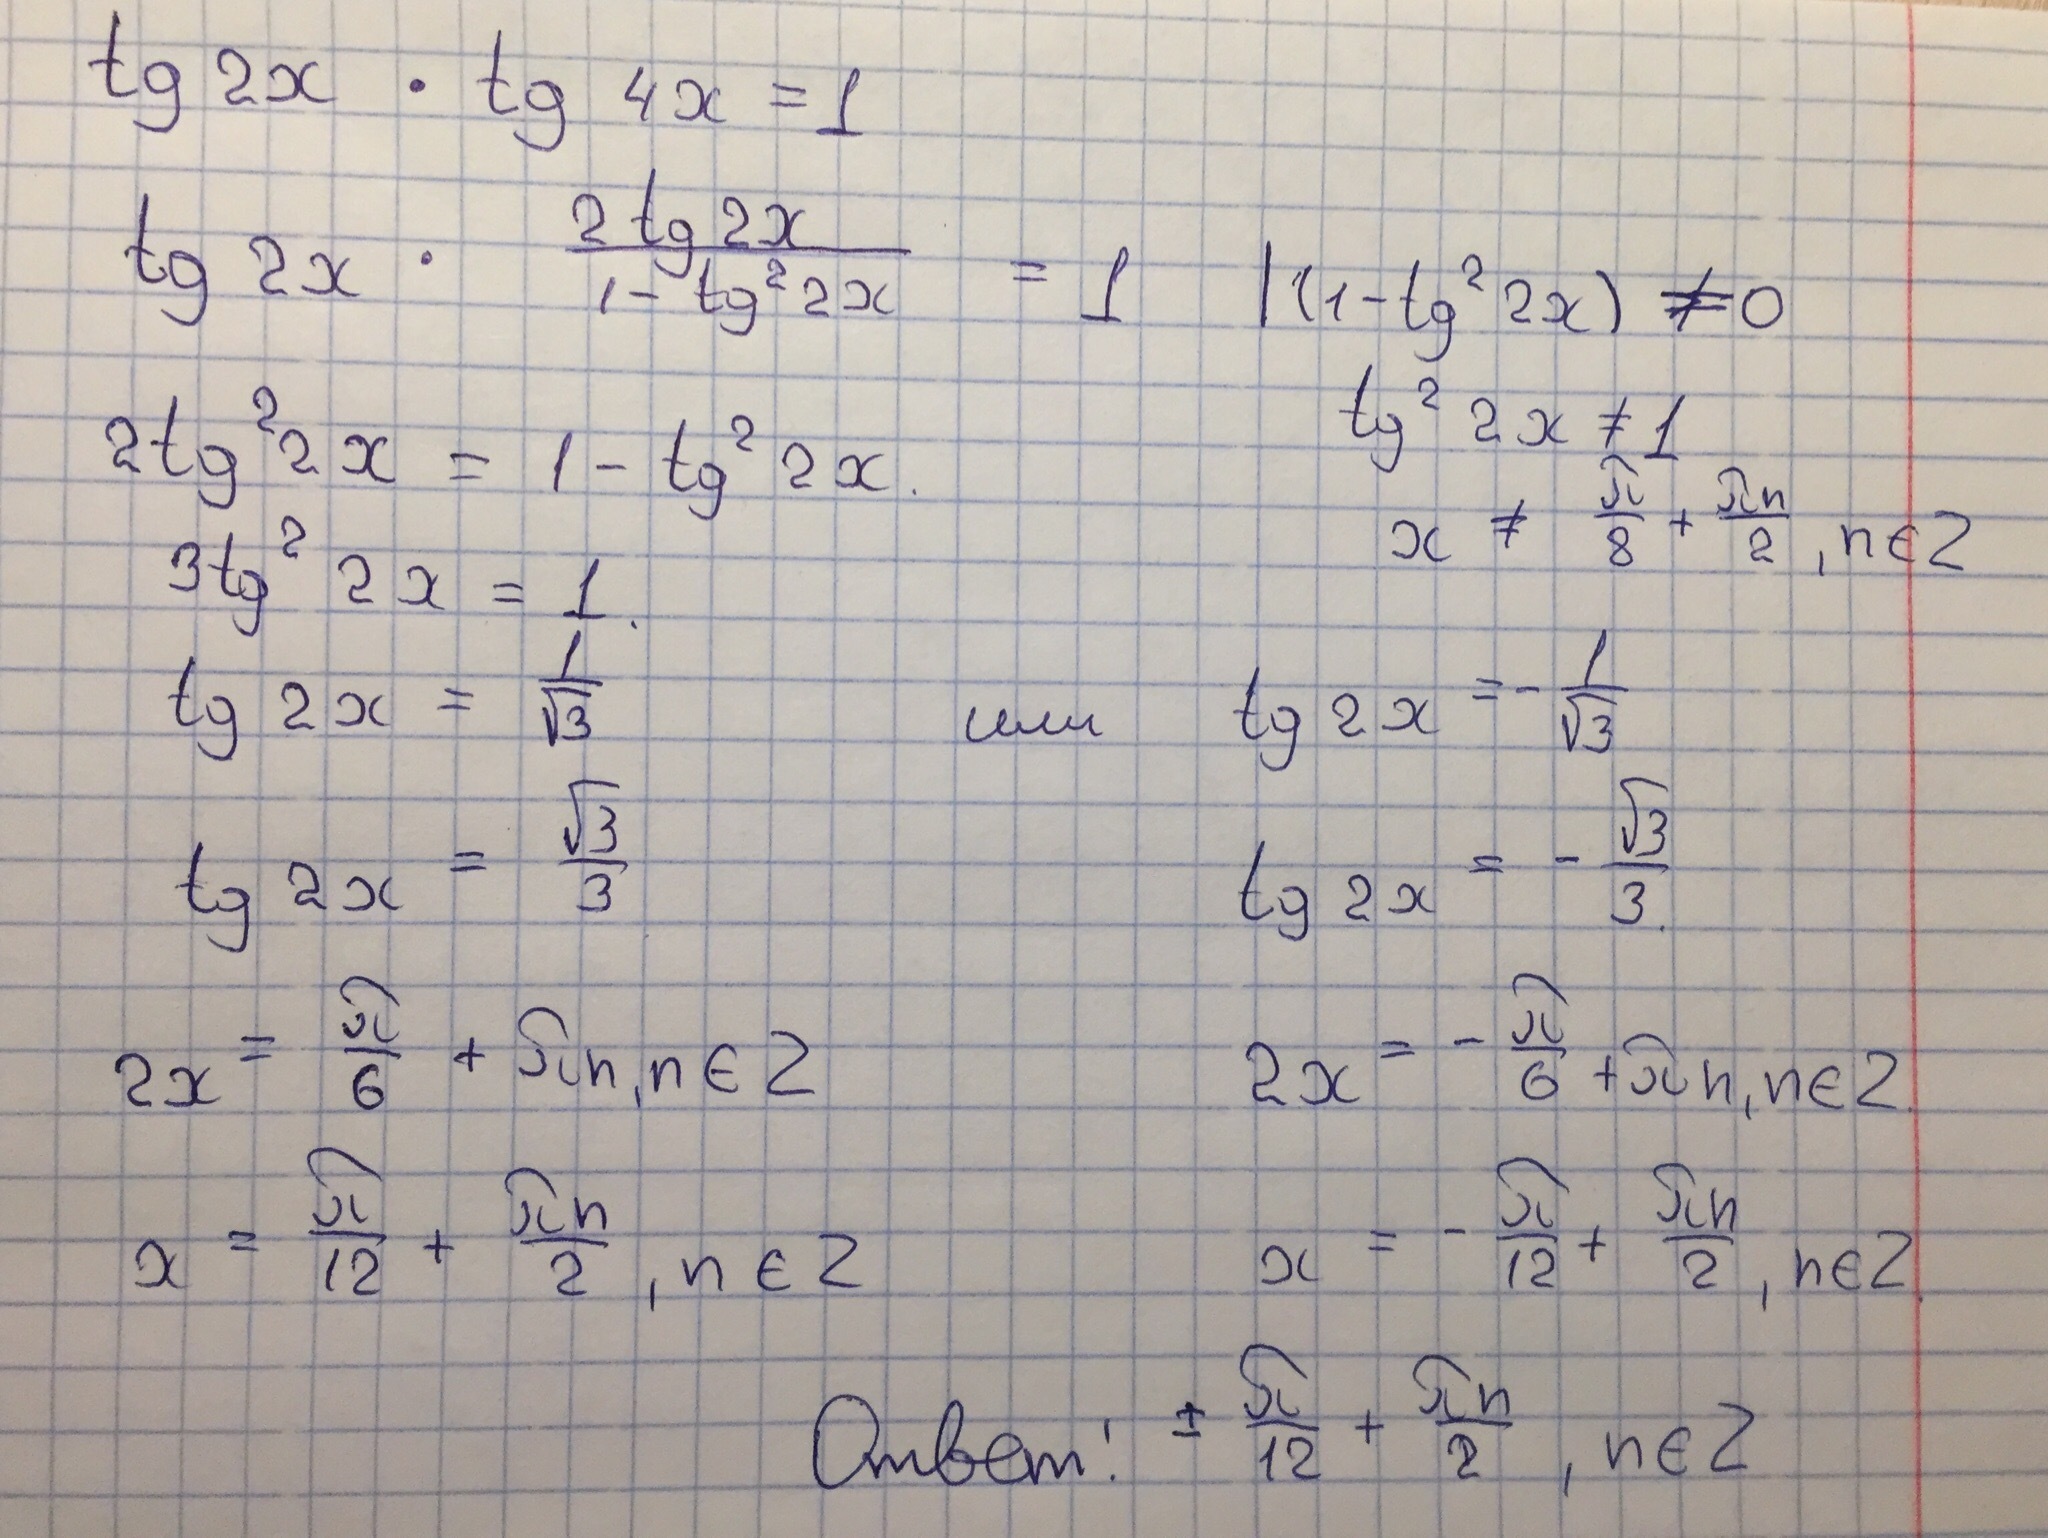 tg 2x · tg 4x = 1
tg 2x · (2 tg 2x)/(1 - tg² 2x) = 1 | (1 - tg² 2x) ≠ 0
tg² 2x ≠ 1
2tg² 2x = 1 - tg² 2x.
x ≠ π/8 + πn/2, n∈Z
3tg² 2x = 1.
tg 2x = 1/√3 или tg 2x = - 1/√3
tg 2x = √3/3 tg 2x = - √3/3.
2x = π/6 + πn, n∈Z 2x = - π/6 + πn, n∈Z.
x = π/12 + πn/2, n∈Z x = - π/12 + πn/2, n∈Z.
Ответ: ± π/12 + πn/2, n∈Z